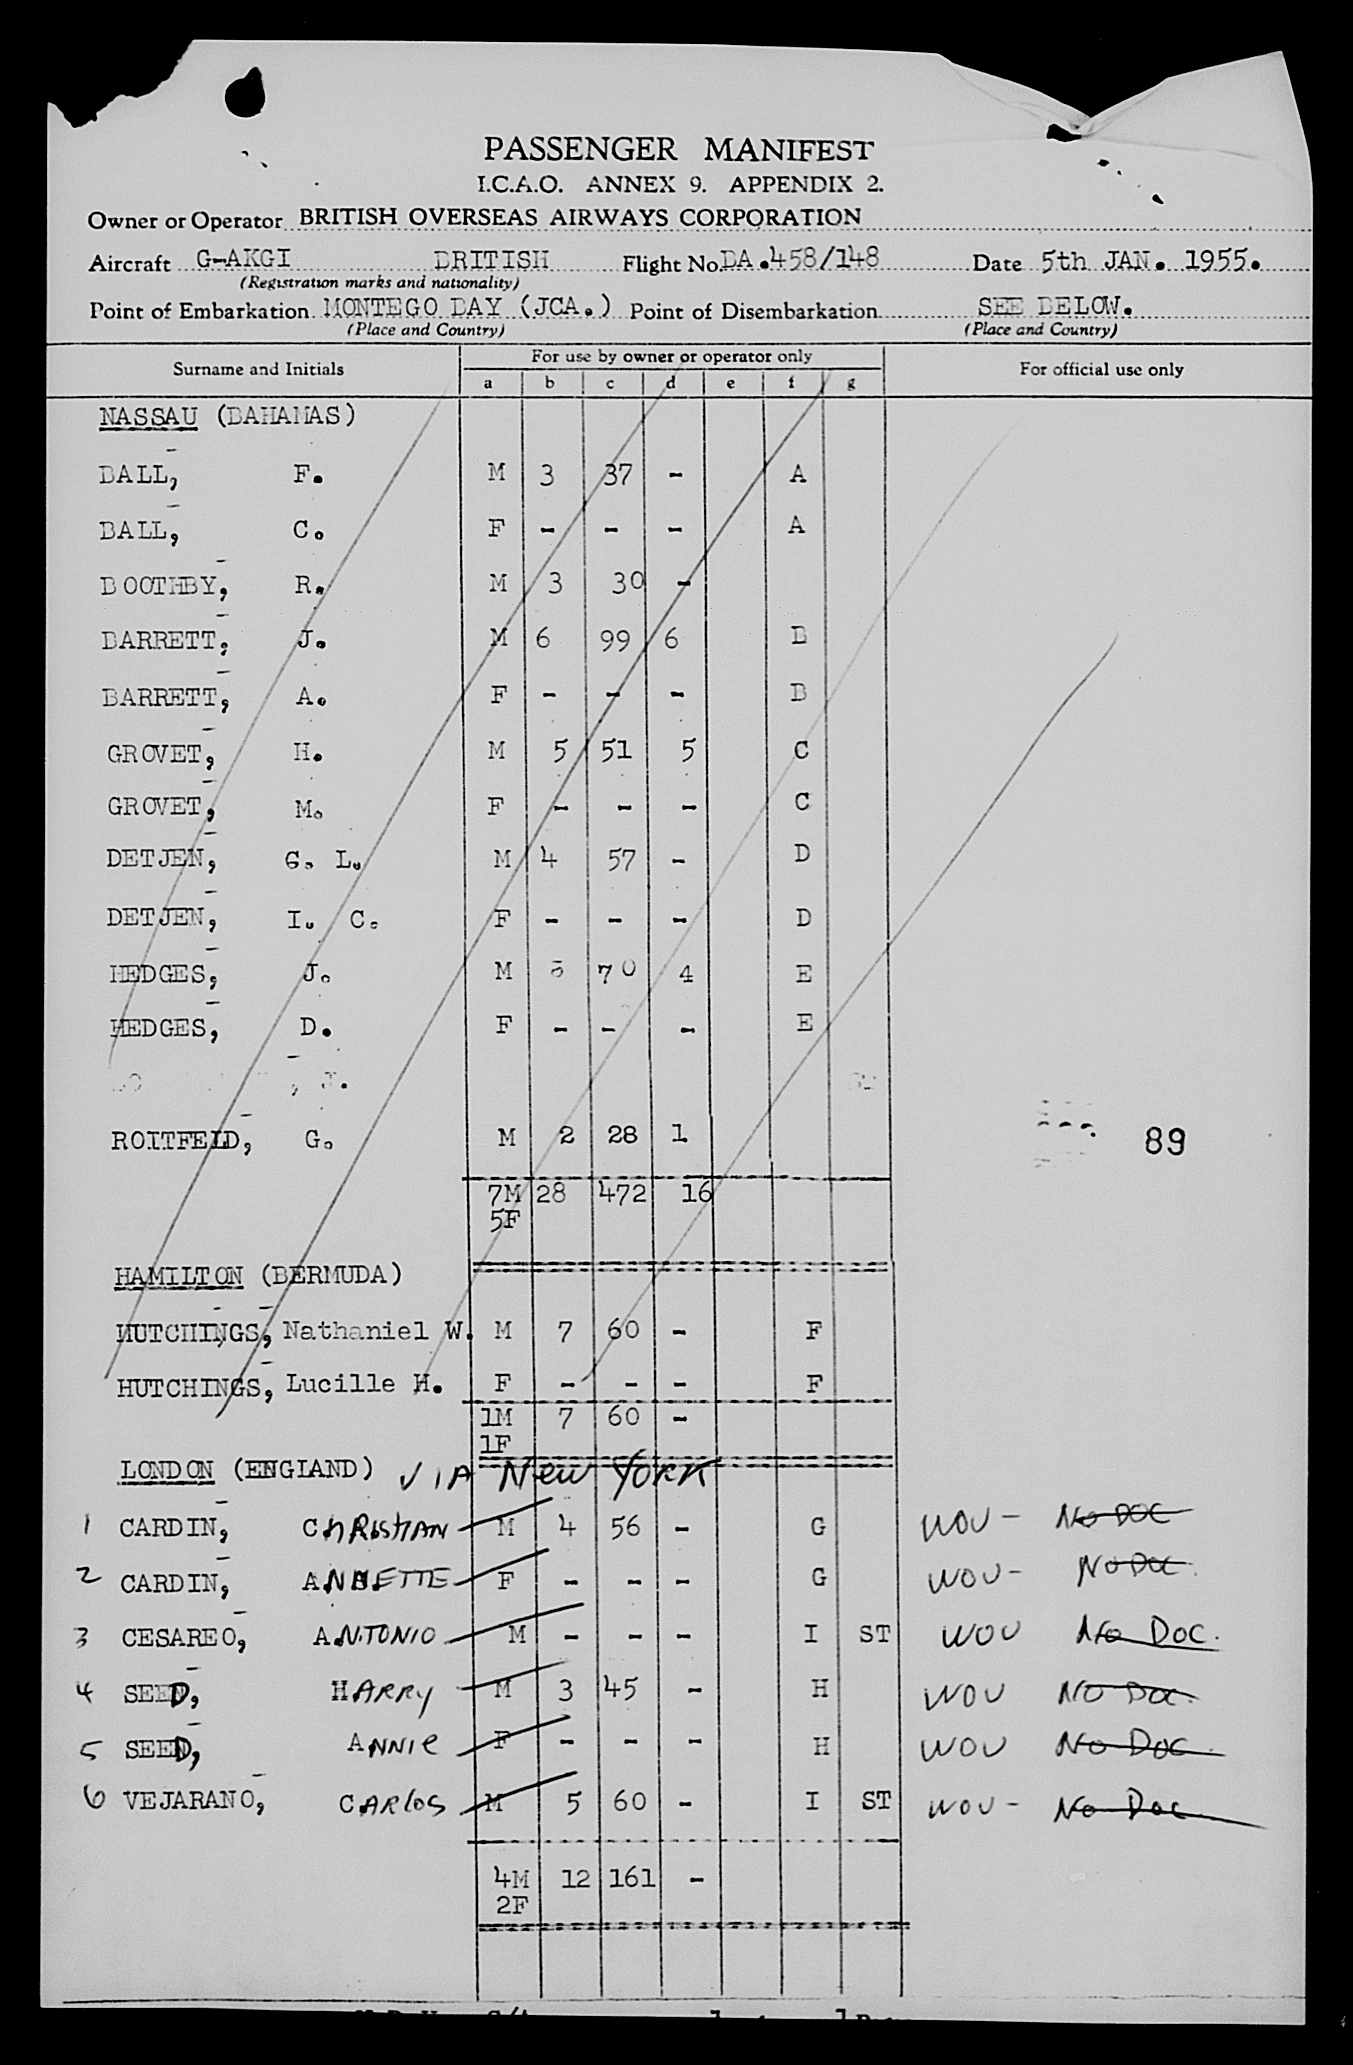 PASSENGER MANIFEST
I.C.A.O. ANNEX 9. APPENDIX 2.
Owner or Operator BRITISH OVERSEAS AIRWAYS CORPORATION
Aircraft G-AKGI BRITISH Flight No. BA.458/148 Date 5th JAN. 1955.
(Registration marks and nationality)
Point of Embarkation MONTEGO BAY (JCA.) Point of Disembarkation SEE BELOW.
(Place and Country) (Place and Country)
Surname and Initials For use by owner or operator only For official use only
a b c d e f g
NASSAU (BAHAMAS)
BALL, F. M 3 37 - A
BALL, C. F - - - A
BOOTHBY, R. M 3 30 -
BARRETT, J. M 6 99 6 B
BARRETT, A. F - - - B
GROVET, H. M 5 51 5 C
GROVET, M. F - - - C
DETJEN, G. L. M 4 57 - D
DETJEN, I. C. F - - - D
HEDGES, J. M 5 70 4 E
HEDGES, D. F - - - E
, J.
ROITFELD, G. M 2 28 1 89
7M 28 472 16
5F
HAMILTON (BERMUDA)
HUTCHINGS, Nathaniel W. M 7 60 - F
HUTCHINGS, Lucille H. F - - - F
1M 7 60 -
1F
LONDON (ENGLAND) VIA New York
1 CARDIN, CHRISTIAN M 4 56 - G WOU - NO DOC
2 CARDIN, ANNETTE F - - - G WOU - NO DOC.
3 CESAREO, ANTONIO M - - - I ST WOU NO DOC.
4 SEED, HARRY M 3 45 - H WOU NO DOC.
5 SEED, ANNIE F - - - H WOU NO DOC.
6 VEJARANO, CARLOS M 5 60 - I ST WOU - NO DOC
4M 12 161 -
2F